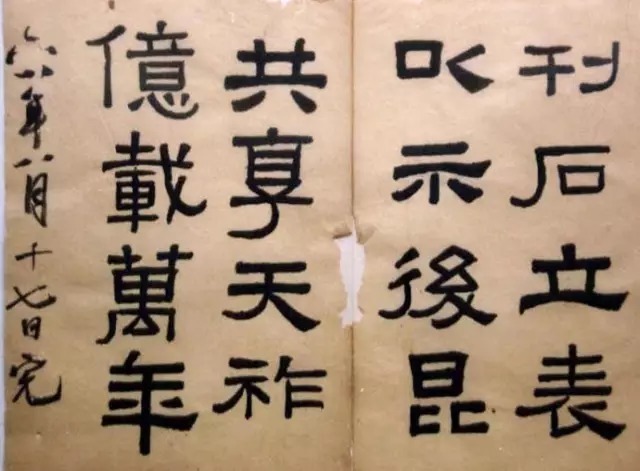 刊石立表
㕥示後昆
共享天祚
億載萬年
六一年八月十七日完